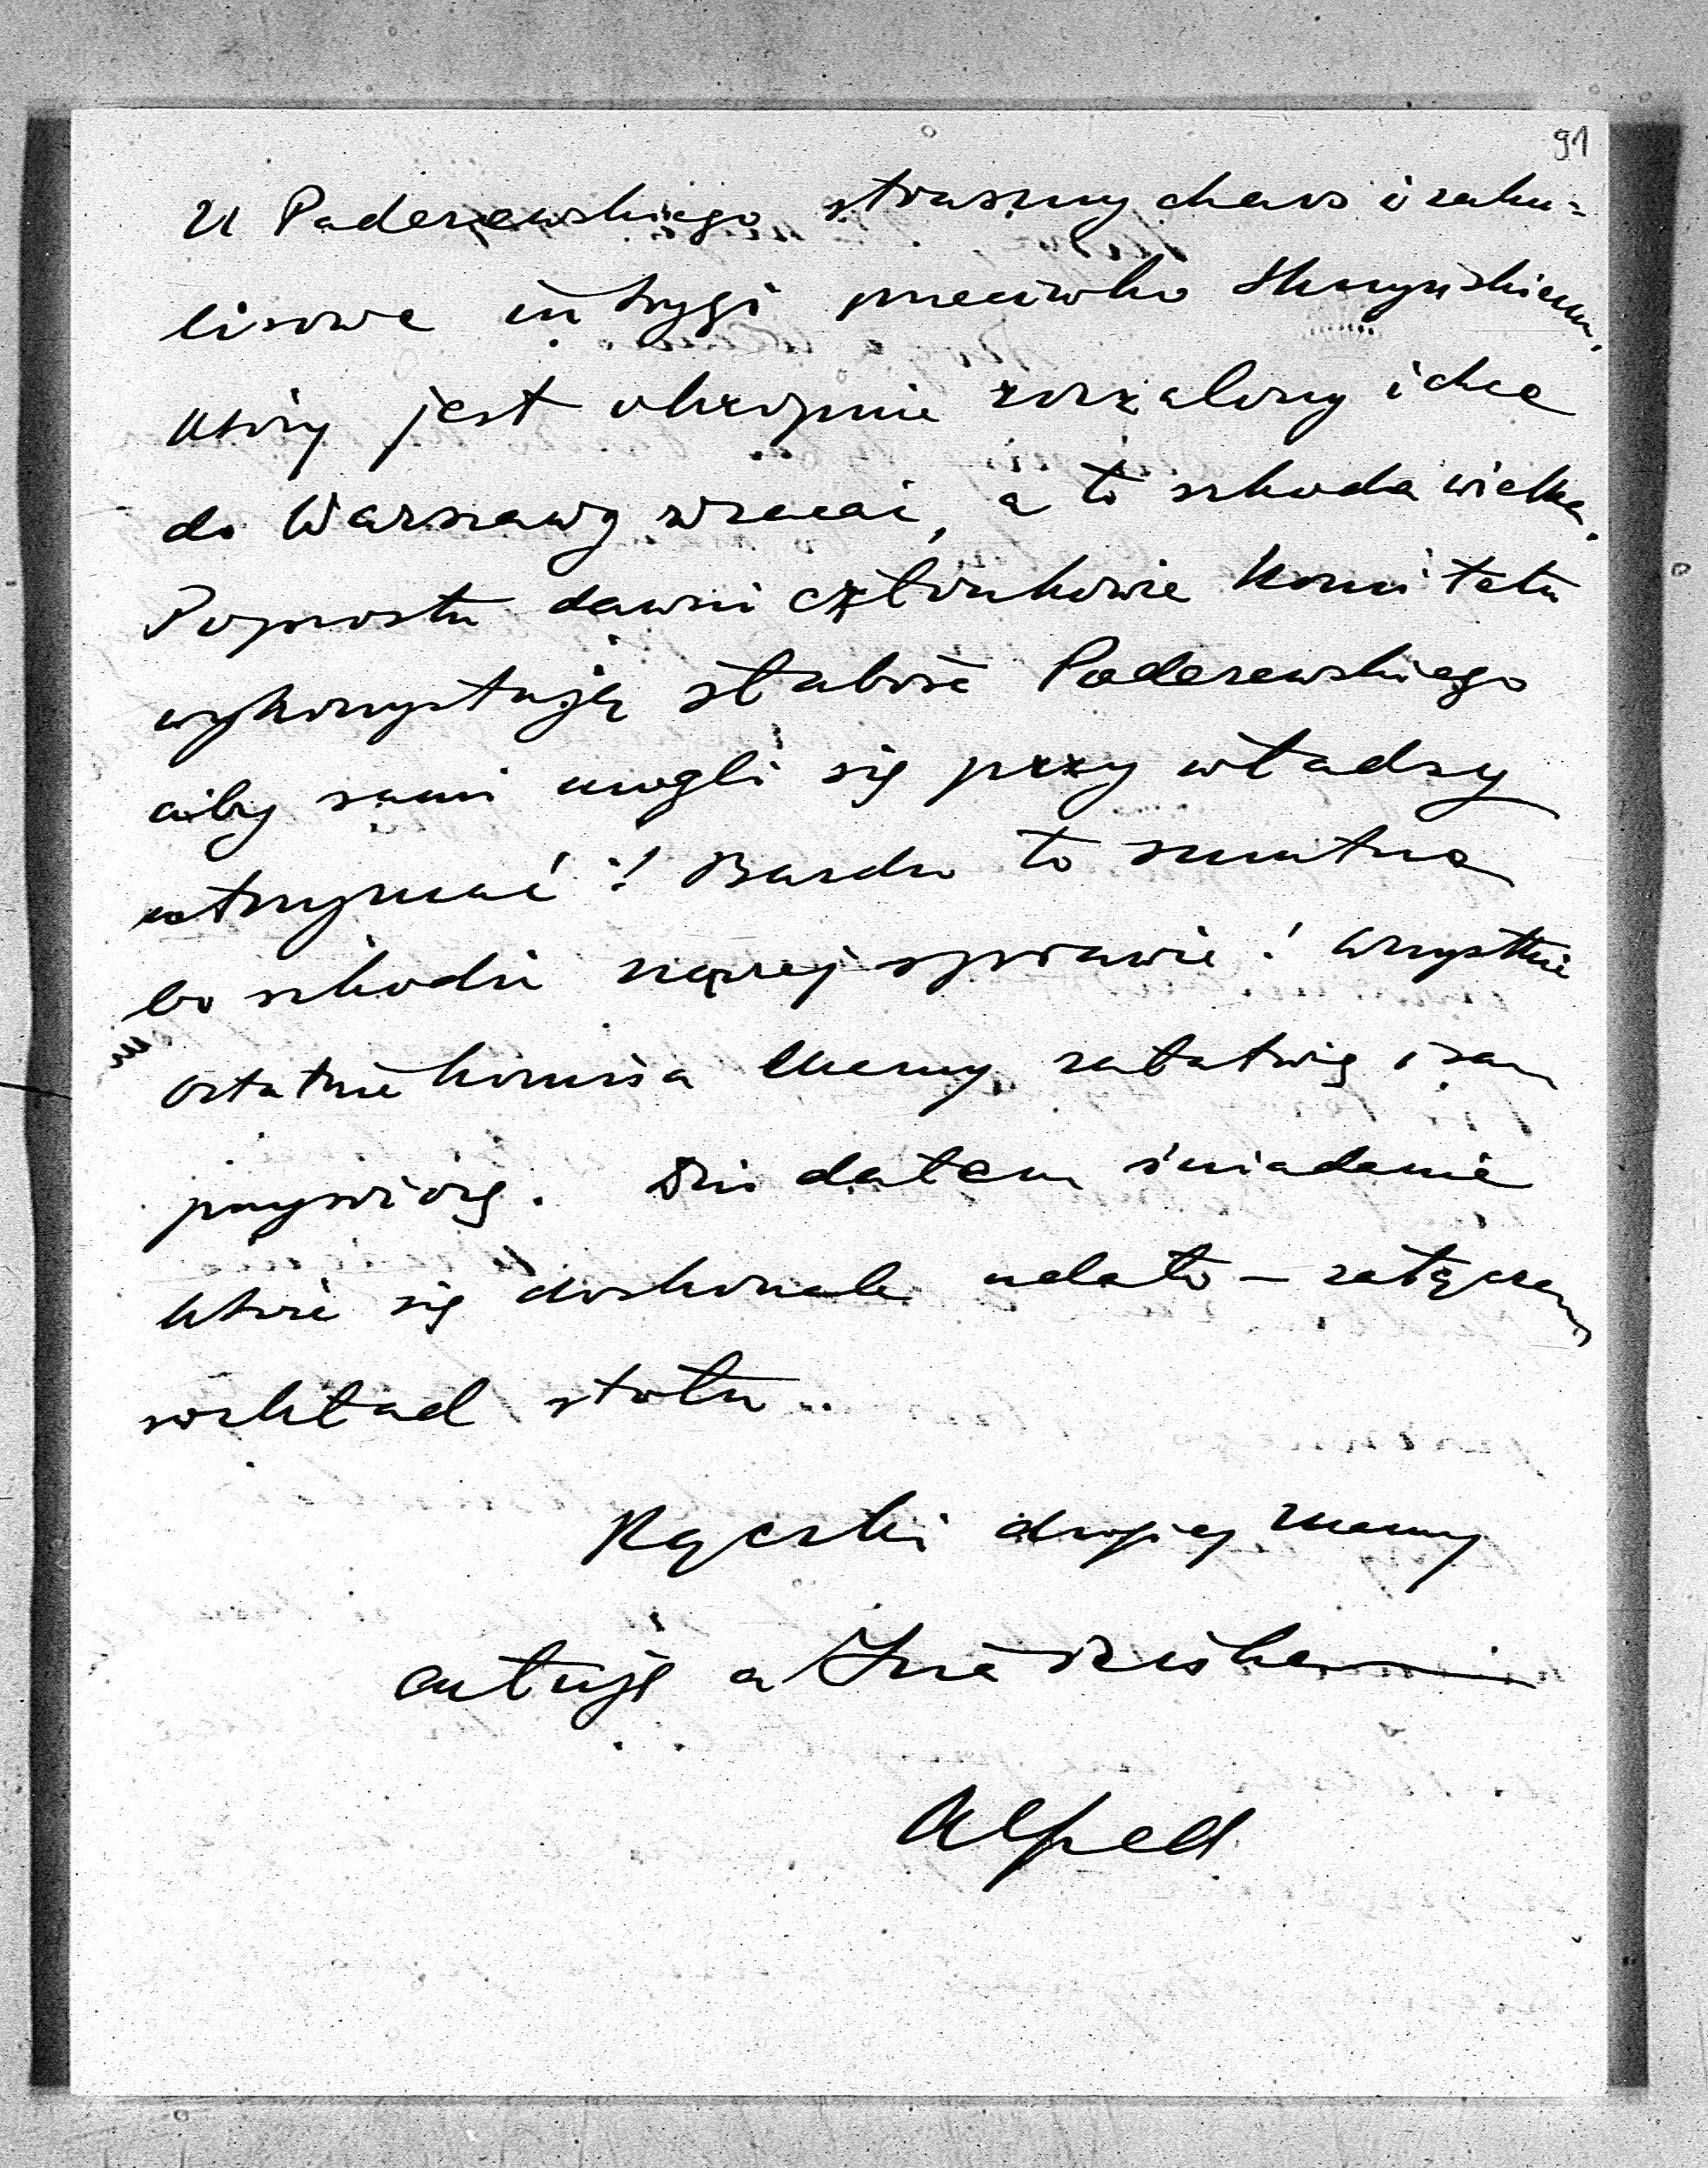 91
U Paderewskiego straszny chaos i zaku=
lisowe intrygi przeciwko Skrzyńskiemu,
który jest okropnie rozżalony i chce
do Warszawy wracać, a to szkoda wielka.
Poprostu dawni członkowie Komitetu
wykorzystują słabość Paderewskiego
aby sami mogli się przy władzy
utrzymać! Bardzo to smutne
bo szkodzi naszej sprawie! Wszystkie
ostatnie Mamy załatwię i sam
przywiozę. Dziś dałem śniadanie
które się doskonale udało — załączam
rozkład stołu.
Rączki drogiej Mamy
całuję a ściskam
Alfred